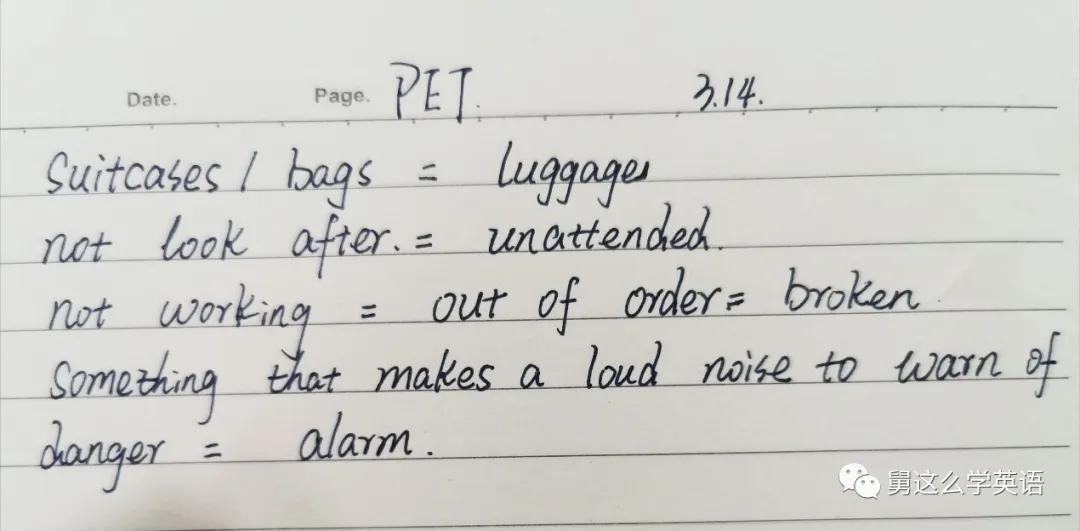 Date. Page. PET. 3.14.
Suitcases / bags = luggages
not look after. = unattended.
not working = out of order = broken
Something that makes a loud noise to warn of
danger = alarm.
舅这么学英语